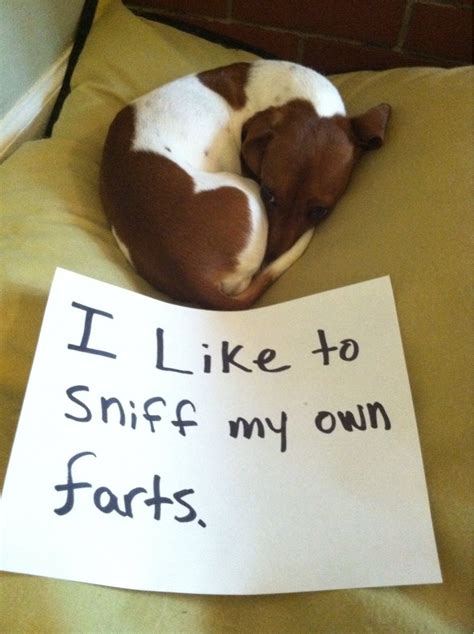 I Like to
Sniff my own
farts.